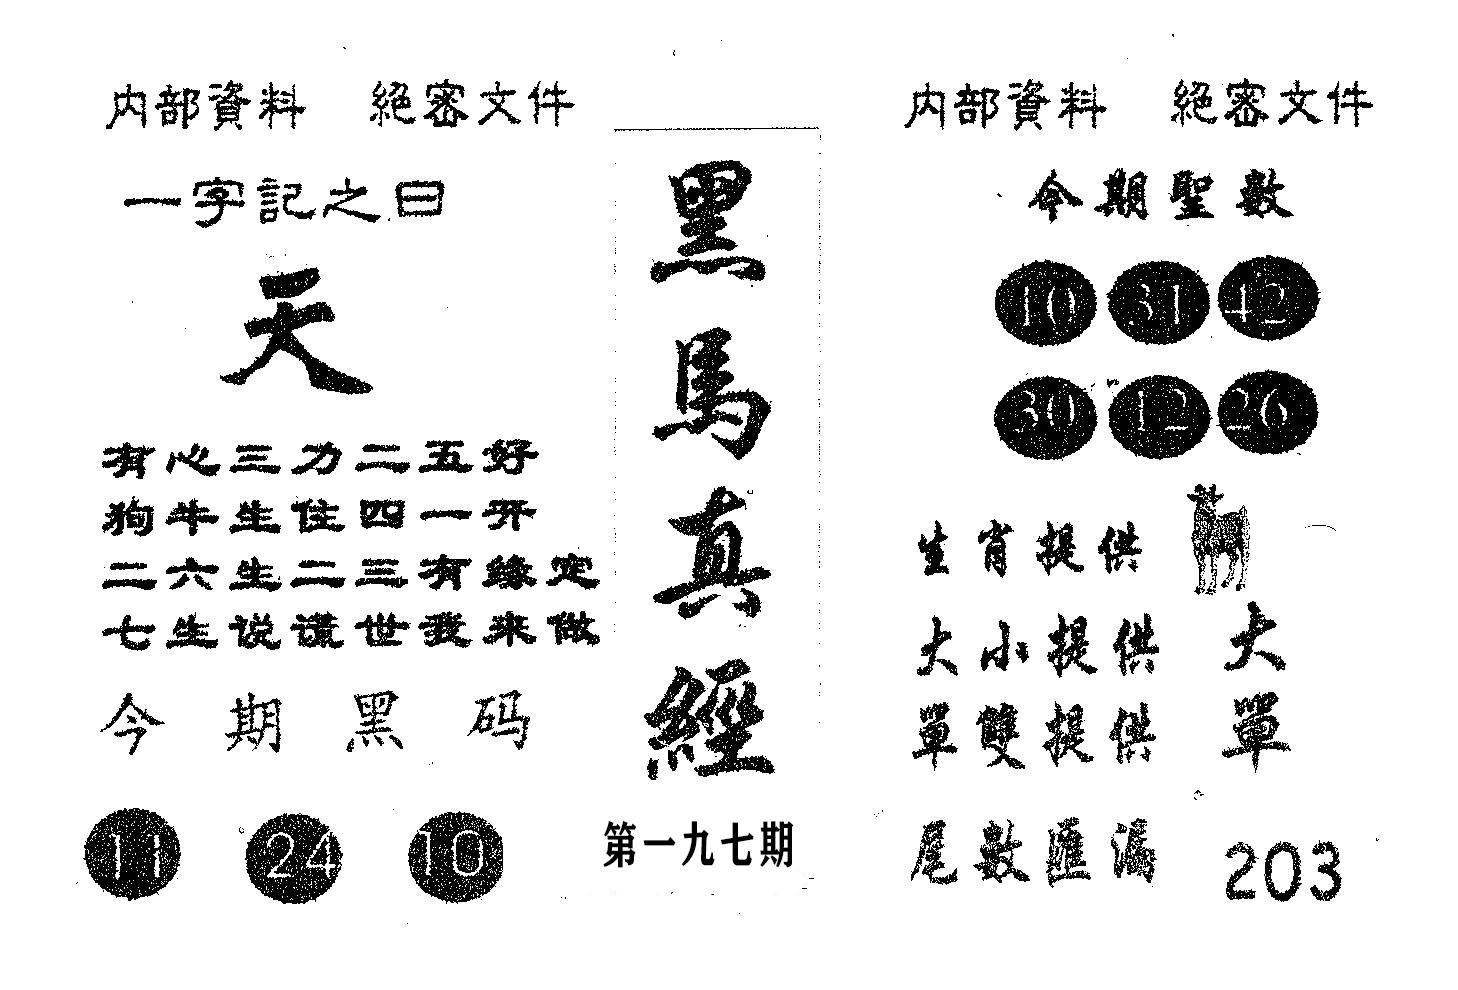 内部資料 絕密文件
一字記之曰
天
有心三力二五好
狗牛生住四一开
二六生二三有緣定
七生说谎世我来做
今期黑码
11 24 10
黑馬真經
第一九七期
内部資料 絕密文件
今期聖數
10 31 42
30 12 26
生肖提供
大小提供 大
單雙提供 單
尾數匯漏 203